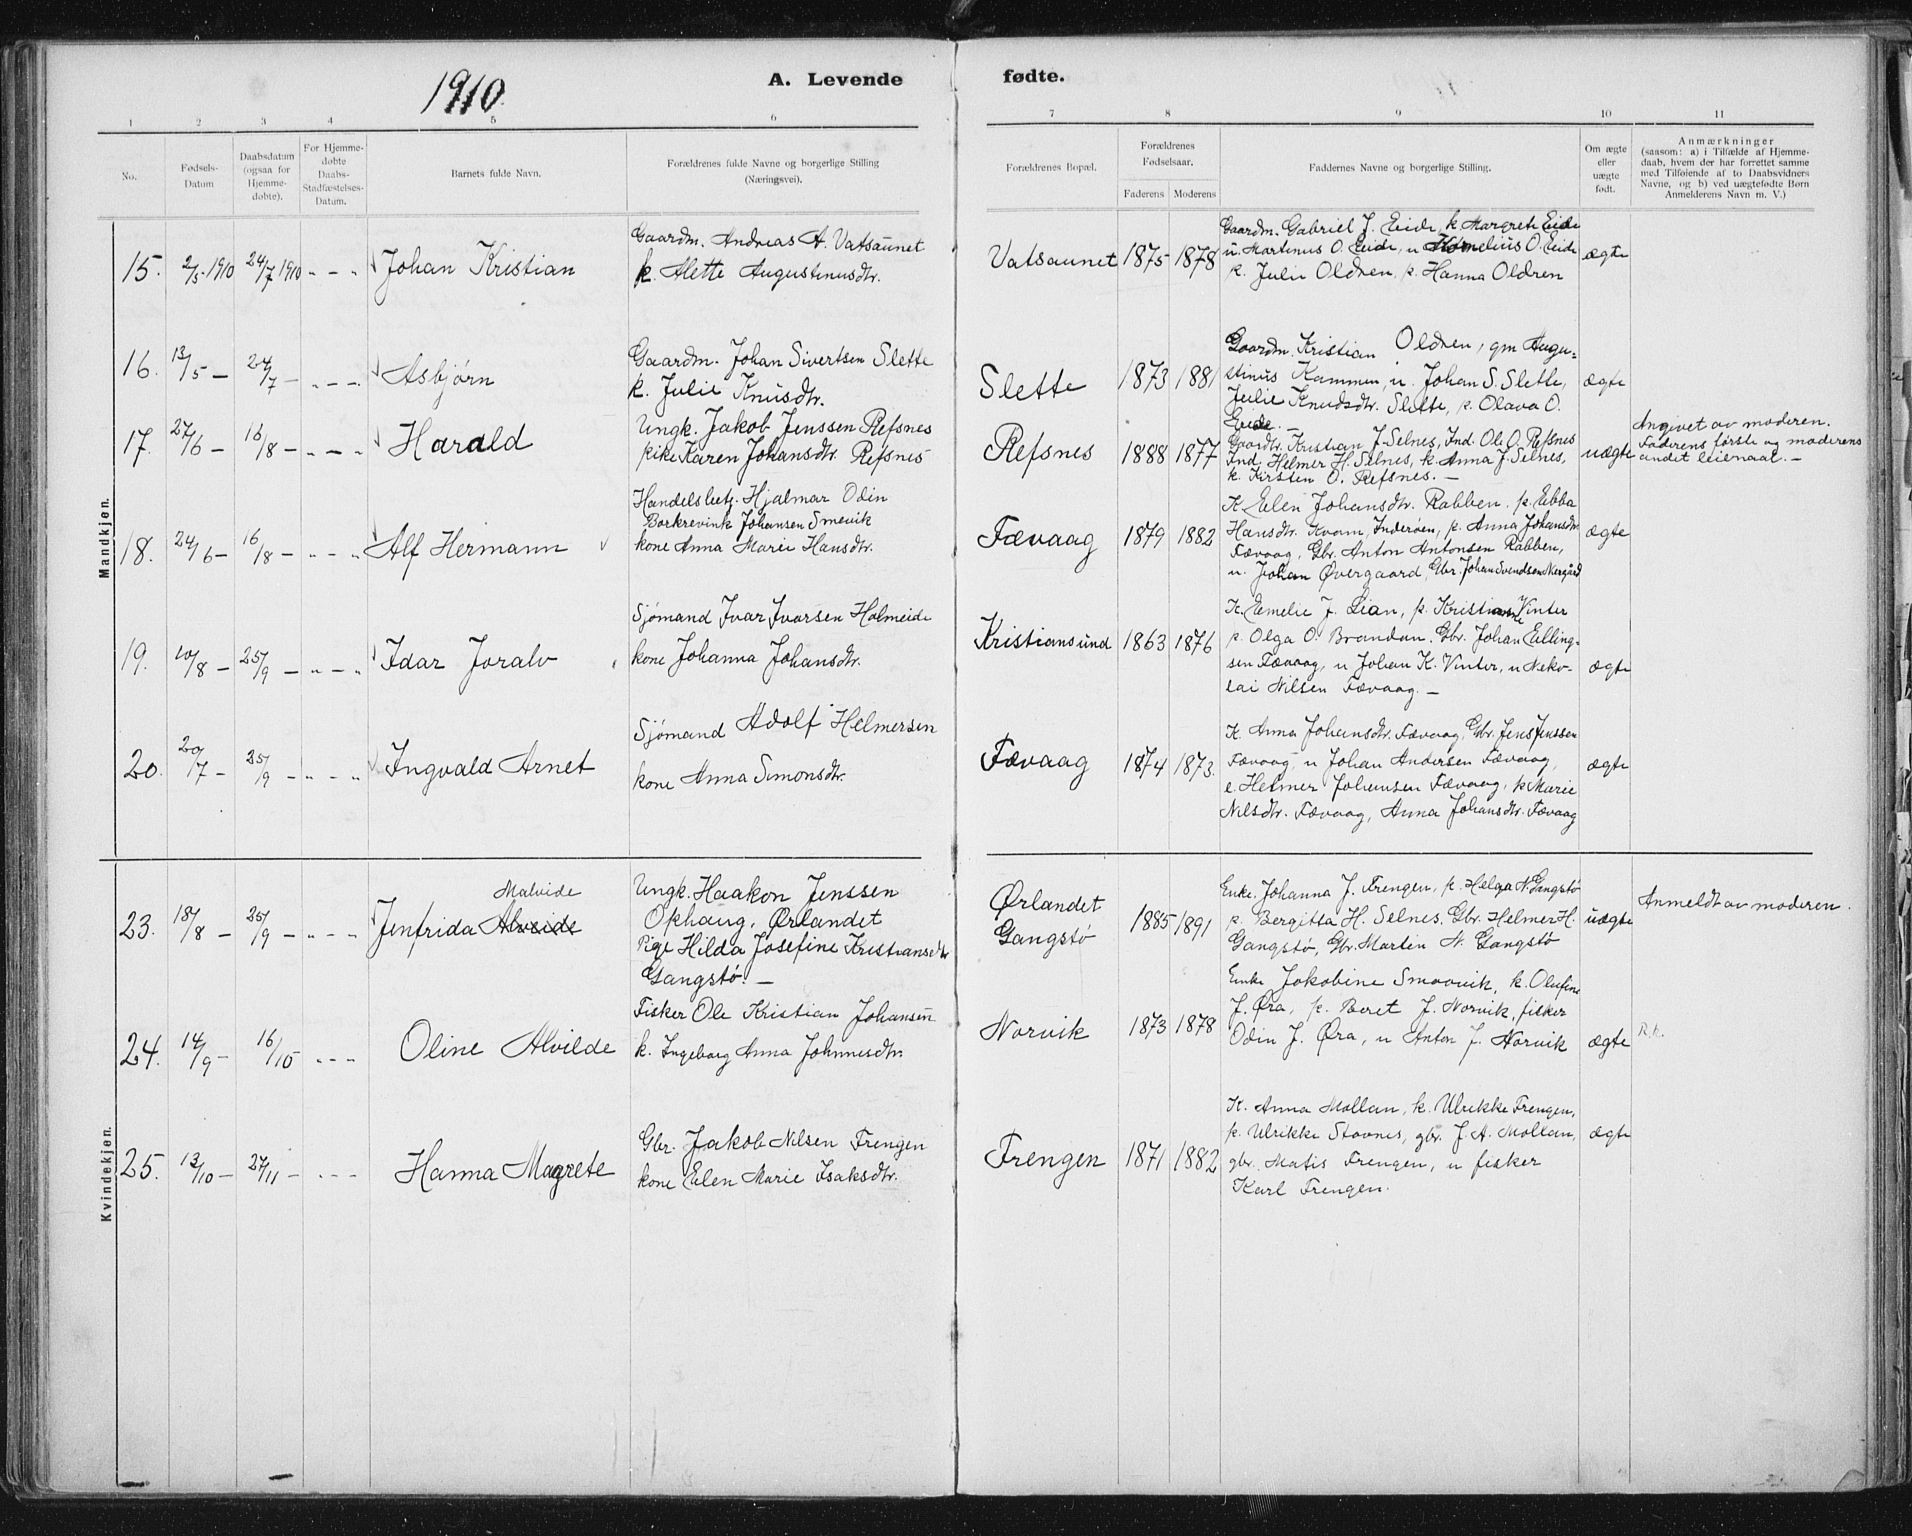 1910
A. Levende
fødte.
1 2 3 4 5 6
7 8 9 10 11
No.
Fødsels-
Datum
Daabsdatum
(ogsaa for
Hjemme-
døbte).
For Hjemme-
døbte
Daabs-
Stadfæstelses-
Datum.
Barnets fulde Navn.
Forældrenes fulde Navne og borgerlige Stilling
(Næringsvei).
Forældrenes Bopæl.
Forældrenes
Fødselsaar.
Faderens Moderens
Faddernes Navne og borgerlige Stilling.
Om ægte
eller
uægte
født.
Anmærkninger
(saasom: a) i Tilfælde af Hjemme-
daab, hvem der har forrettet samme
med Tilføiende af to Daabsvidners
Navne, og b) ved uægtefødte Børn
Anmelderens Navn m. V.)
Mandkjøn.
15. 2/5 1910 24/7 1910 - - - Johan Kristian
Gaardm. Andreas A. Vatsaunet
k. Alette Augustinusdtr.
Vatsaunet 1875 1878
Gaardm. Gabriel J. Eide, k Margrete Eide
u. Martinus O. Eide, u Kornelius O. Eide
p. Julie Oldren, p. Hanna Oldren
ægte
16. 13/5 - 24/7 - - - - Asbjørn
Gaardm. Johan Sivertsen Slette
k. Julie Knusdtr.
Slette 1873 1881
Gaardm. Kristian Oldren, gm Augu-
stinus Kammen, u. Johan S. Slette,
Julie Knudsdtr. Slette, p. Olava O.
Eide. -
ægte
17. 27/6 - 16/8 - - - - Harald
Ungk. Jakob Jenssen Refsnes
pike Karen Johansdtr. Refsnes
Refsnes 1888 1877
Gaardbr. Kristian J. Selnes, Ind. Ole O. Refsnes
Ind. Helmer H. Selnes, k. Anna J. Selnes,
k. Kirsten O. Refsnes. -
uægte
Angivet av moderen.
Faderens første og moderens
andet leiermaal. -
18. 24/6 - 16/8 - - - - Alf Hermann
Handelsbetj. Hjalmar Odin
Borkrevink Johansen Smevik
kone Anna Marie Hansdtr.
Fævaag 1879 1882
K. Elen Johansdtr. Rabben, p. Ebba
Hansdtr. Kvam, Inderøen, p. Anna Johansdtr.
Fævaag, Gbr. Anton Antonsen Rabben,
u. Johan Øvergaard, Gbr. Johan Svendsen Nergård
ægte
19. 10/8 - 25/9 - - - - Idar Joralv
Sjømand Ivar Ivarsen Holmeide
kone Johanna Johansdtr.
Kristiansund 1863 1876
K. Emelie J. Lian, p. Kristianne Vinter
p. Olga O. Brandan. Gbr. Johan Elling-
sen Fævaag, u Johan K. Vinter, u Neko-
lai Nilsen Fævaag. -
ægte
20. 20/7 - 25/9 - - - - Ingvald Arnet
Sjømand Adolf Helmersen
kone Anna Simonsdtr.
Fævaag 1874 1873.
K. Anna Johansdtr. Fævaag, Gbr. Jens Jenssen
Fævaag, u Johan Andersen Fævaag,
e. Helmer Johansen Fævaag, p Marie
Nilsdtr. Fævaag, Anna Johansdtr. Fævaag
ægte
Kvindekjøn.
Malvide
23. 18/8 - 25/9 - - - - Jenfrida Alveide
Ungk. Haakon Jenssen
Ophaug, Ørlandet
Pige Hilda Josefine Kristiansdtr
Gangstø. -
Ørlandet
Gangstø
1885 1891
Enke Johanna J. Frengen, p. Helga N. Gangstø
p. Bergitta H. Selnes, Gbr. Helmer H.
Gangstø, Gbr. Martin N. Gangstø
uægte
Anmeldt av moderen.
24. 14/9 - 16/10 - - - Oline Alvilde
Fisker Ole Kristian Johansen
k. Ingeborg Anna Johannesdtr.
Norvik 1873 1878
Enke Jakobine Smevik, k. Olufine
J. Øra, p. Beret J. Norvik, fisker
Odin J. Øra, u Anton J. Norvik
ægte
R.k.
25. 13/10 - 27/11 - - - - Hanna Magrete
Gbr. Jakob Nilsen Frengen
kone Elen Marie Isaksdtr.
Frengen 1871 1882
K. Anna Mollan, k. Ulrikke Frengen,
p. Ulrikke Stavnes, gbr. J. A. Mollan,
gbr. Matis Frengen, u fisker
Karl Frengen.
ægte